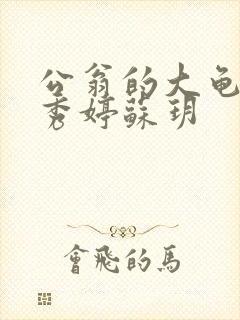 公翁的大龟
秀婷蘇玥
會飛的馬